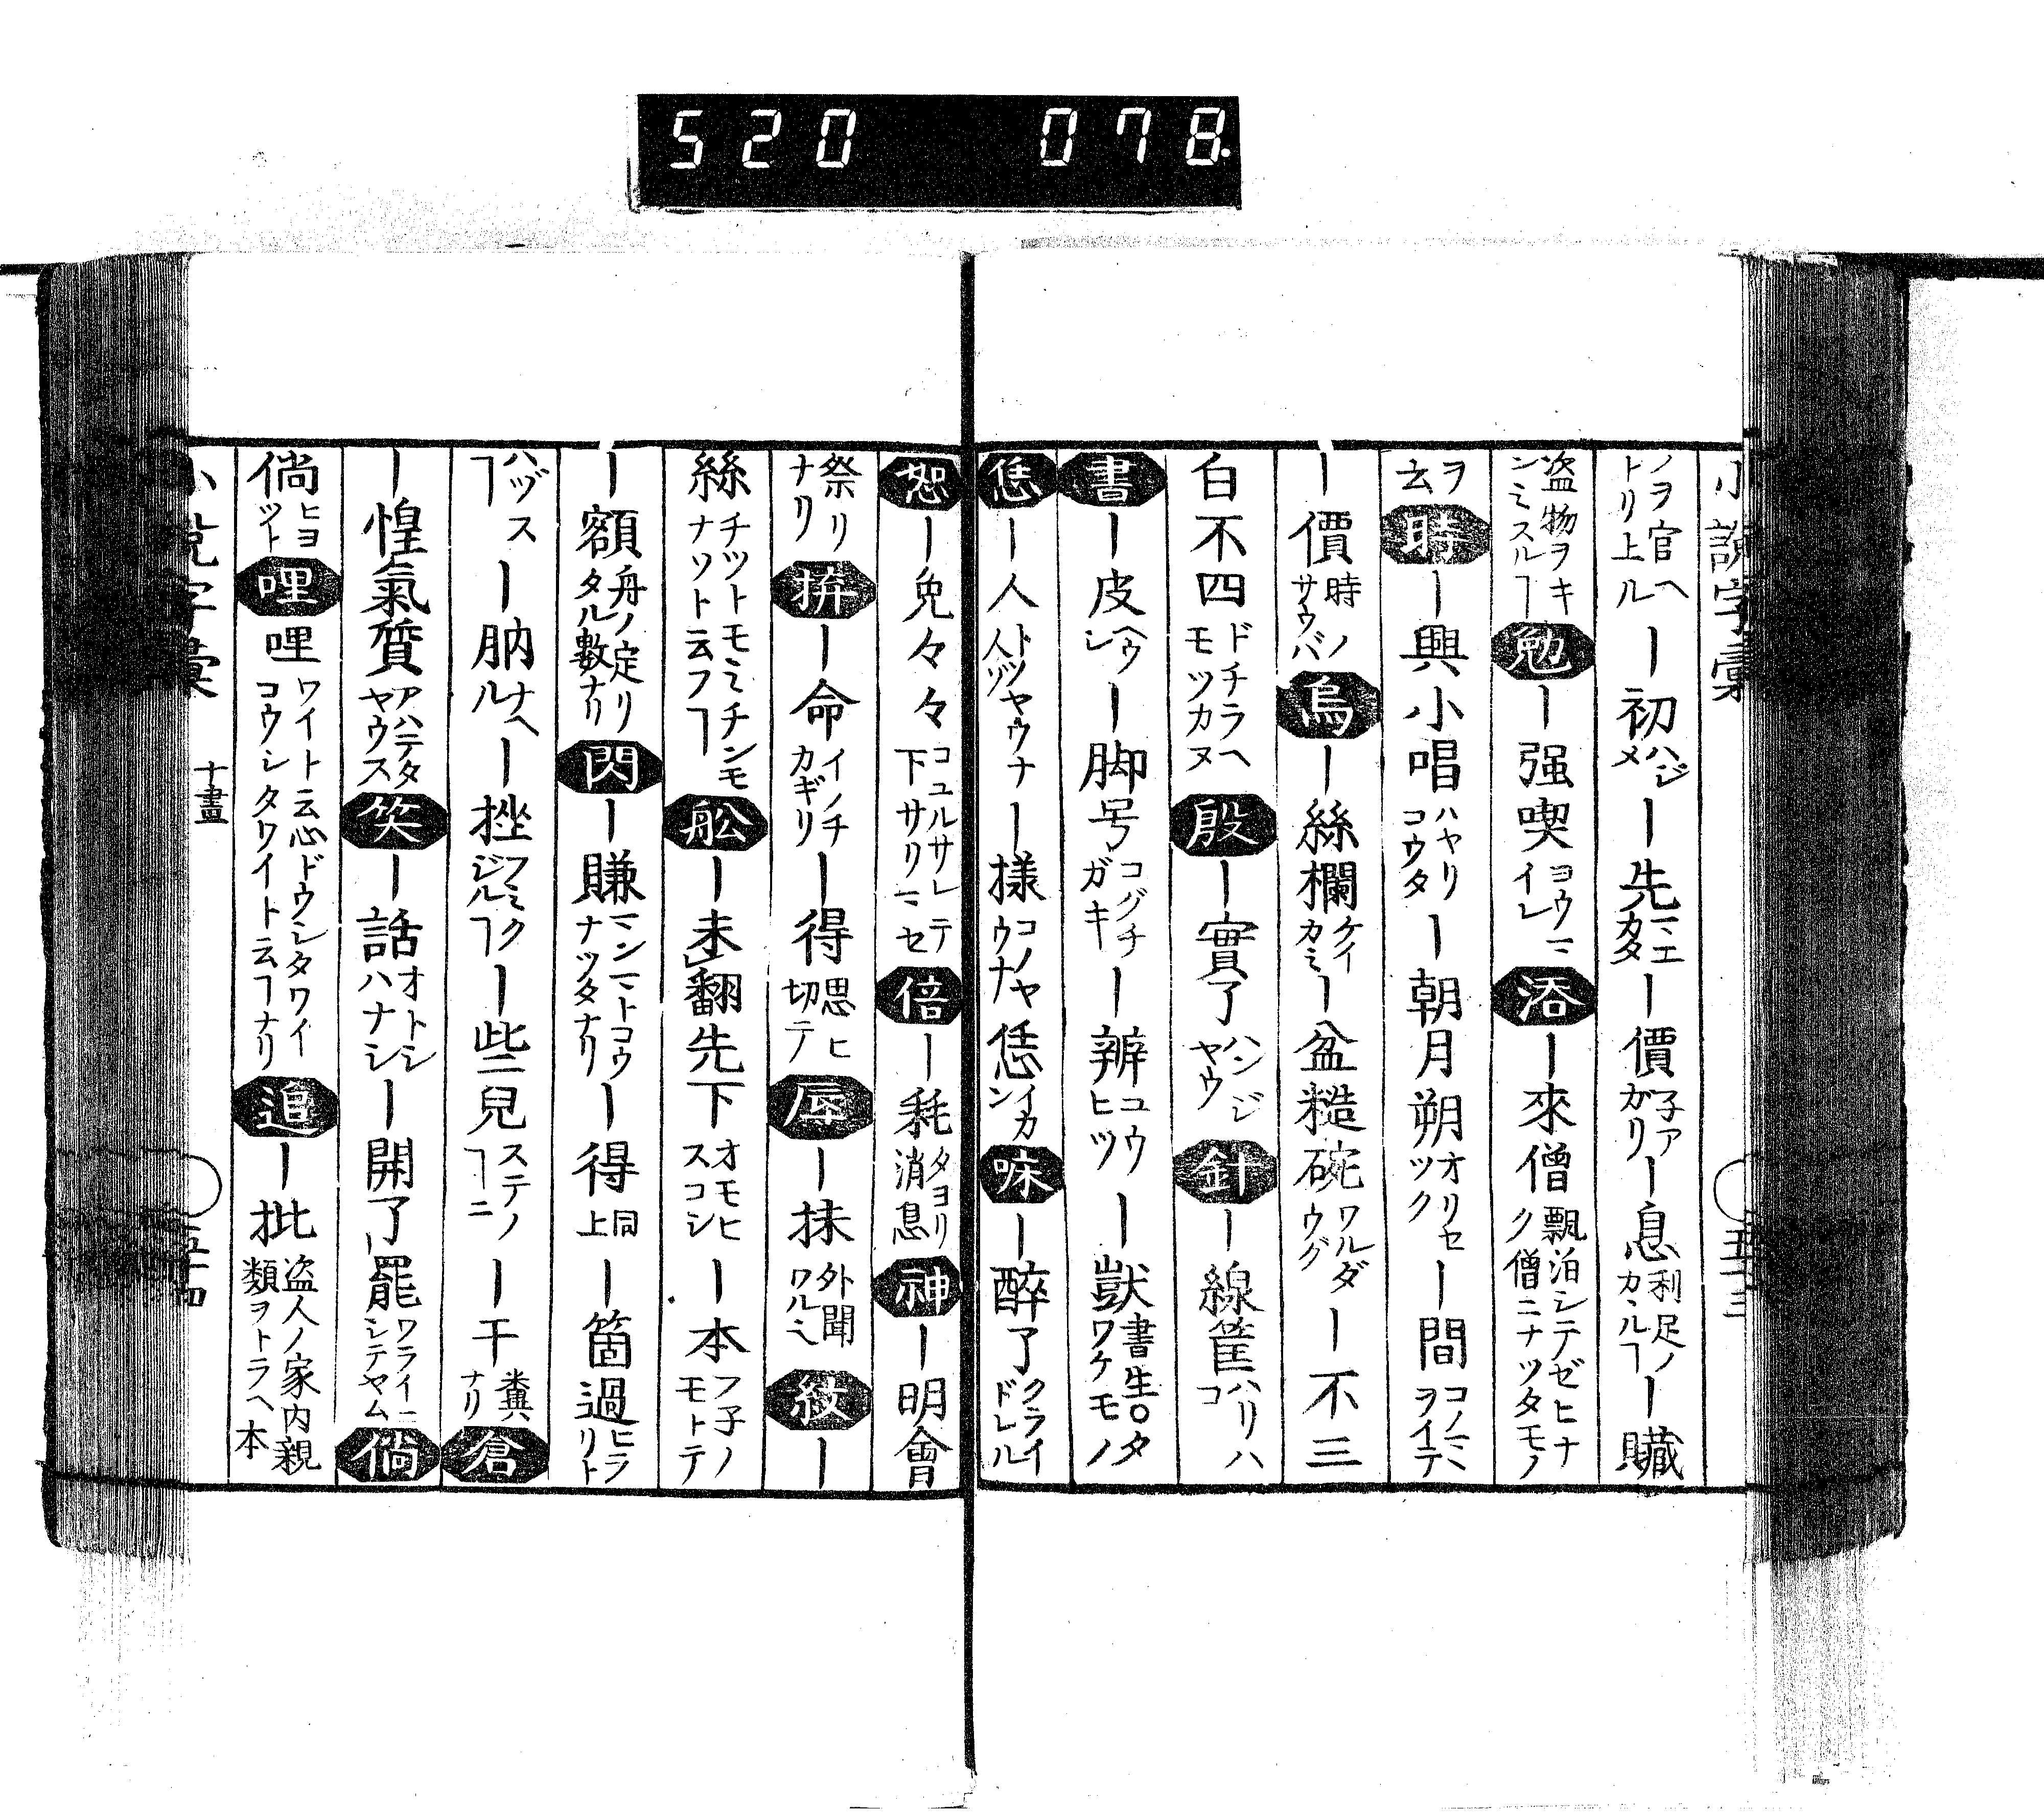 520 078.
小説字彙 五十三
ノヲ官ヘトリ上ル ー初 ハジメ ー先 マエカタ ー價 子アガリ ー息 利足ノカヽルヿ ー贓
盗物ヲキンミスルヿ 勉 ー强喫 ヨウマイレ 浴 ー來僧 飄泊シテゼヒナク僧ニナツタモノ
ヲ云 時 ー興小唱 ハヤリコウタ ー朝月朔 オリセツク ー間 コノミヲイテ
ー價 時ノサウバ 烏 ー絲欄 ケイカミ ー盆糙碗 ワルダウグ ー不三
白不四 ドチラヘモツカヌ 殷 ー實了 ハンジヤウ 針 ー線筐 ハリハコ
書 ー皮 ヘウシ ー脚号 コグチガキ ー辨 ユウヒツ ー獃 書生〇タワケモノ
恁 ー人 トツヤウナ人ヅ ー樣 コノヤウナ 恁 イカン 味 ー醉了 クライドレル
恕 ー免々々 コユルサレテ下サリマセ 倍 ー耗 タヨリ消息 神 ー明會
祭リナリ 拚 ー命 イノチカギリ ー得 思ヒ切テ 辱 ー抹 外聞ワルヘ 紋 ー
絲 チツトモミチンモナソト云フヿ 舩 ー未翻先下 オモヒスコシ ー本 フ子ノモトテ
ー額 舟ノ定リタル數ナリ 閃 ー賺 マンマトコウナツタナリ ー得 同上 ー箇過 ヒラリト
ハヅスヿ ー肭 ナヘル ー挫 フミクジルヿ ー些兒 ステノヿニ ー干 糞ナリ 倉
ー惶氣質 アハテタヤウス 笑 ー話 オトシハナシ ー開了罷 ワライニシテヤム 倘
倘 ヒヨツト 哩 哩 ワイト云心ドウシタワイコウシタワイト云ヿナリ 追 ー批 盗人ノ家内親類ヲトラヘ本
小説字彙 十畫 五十四